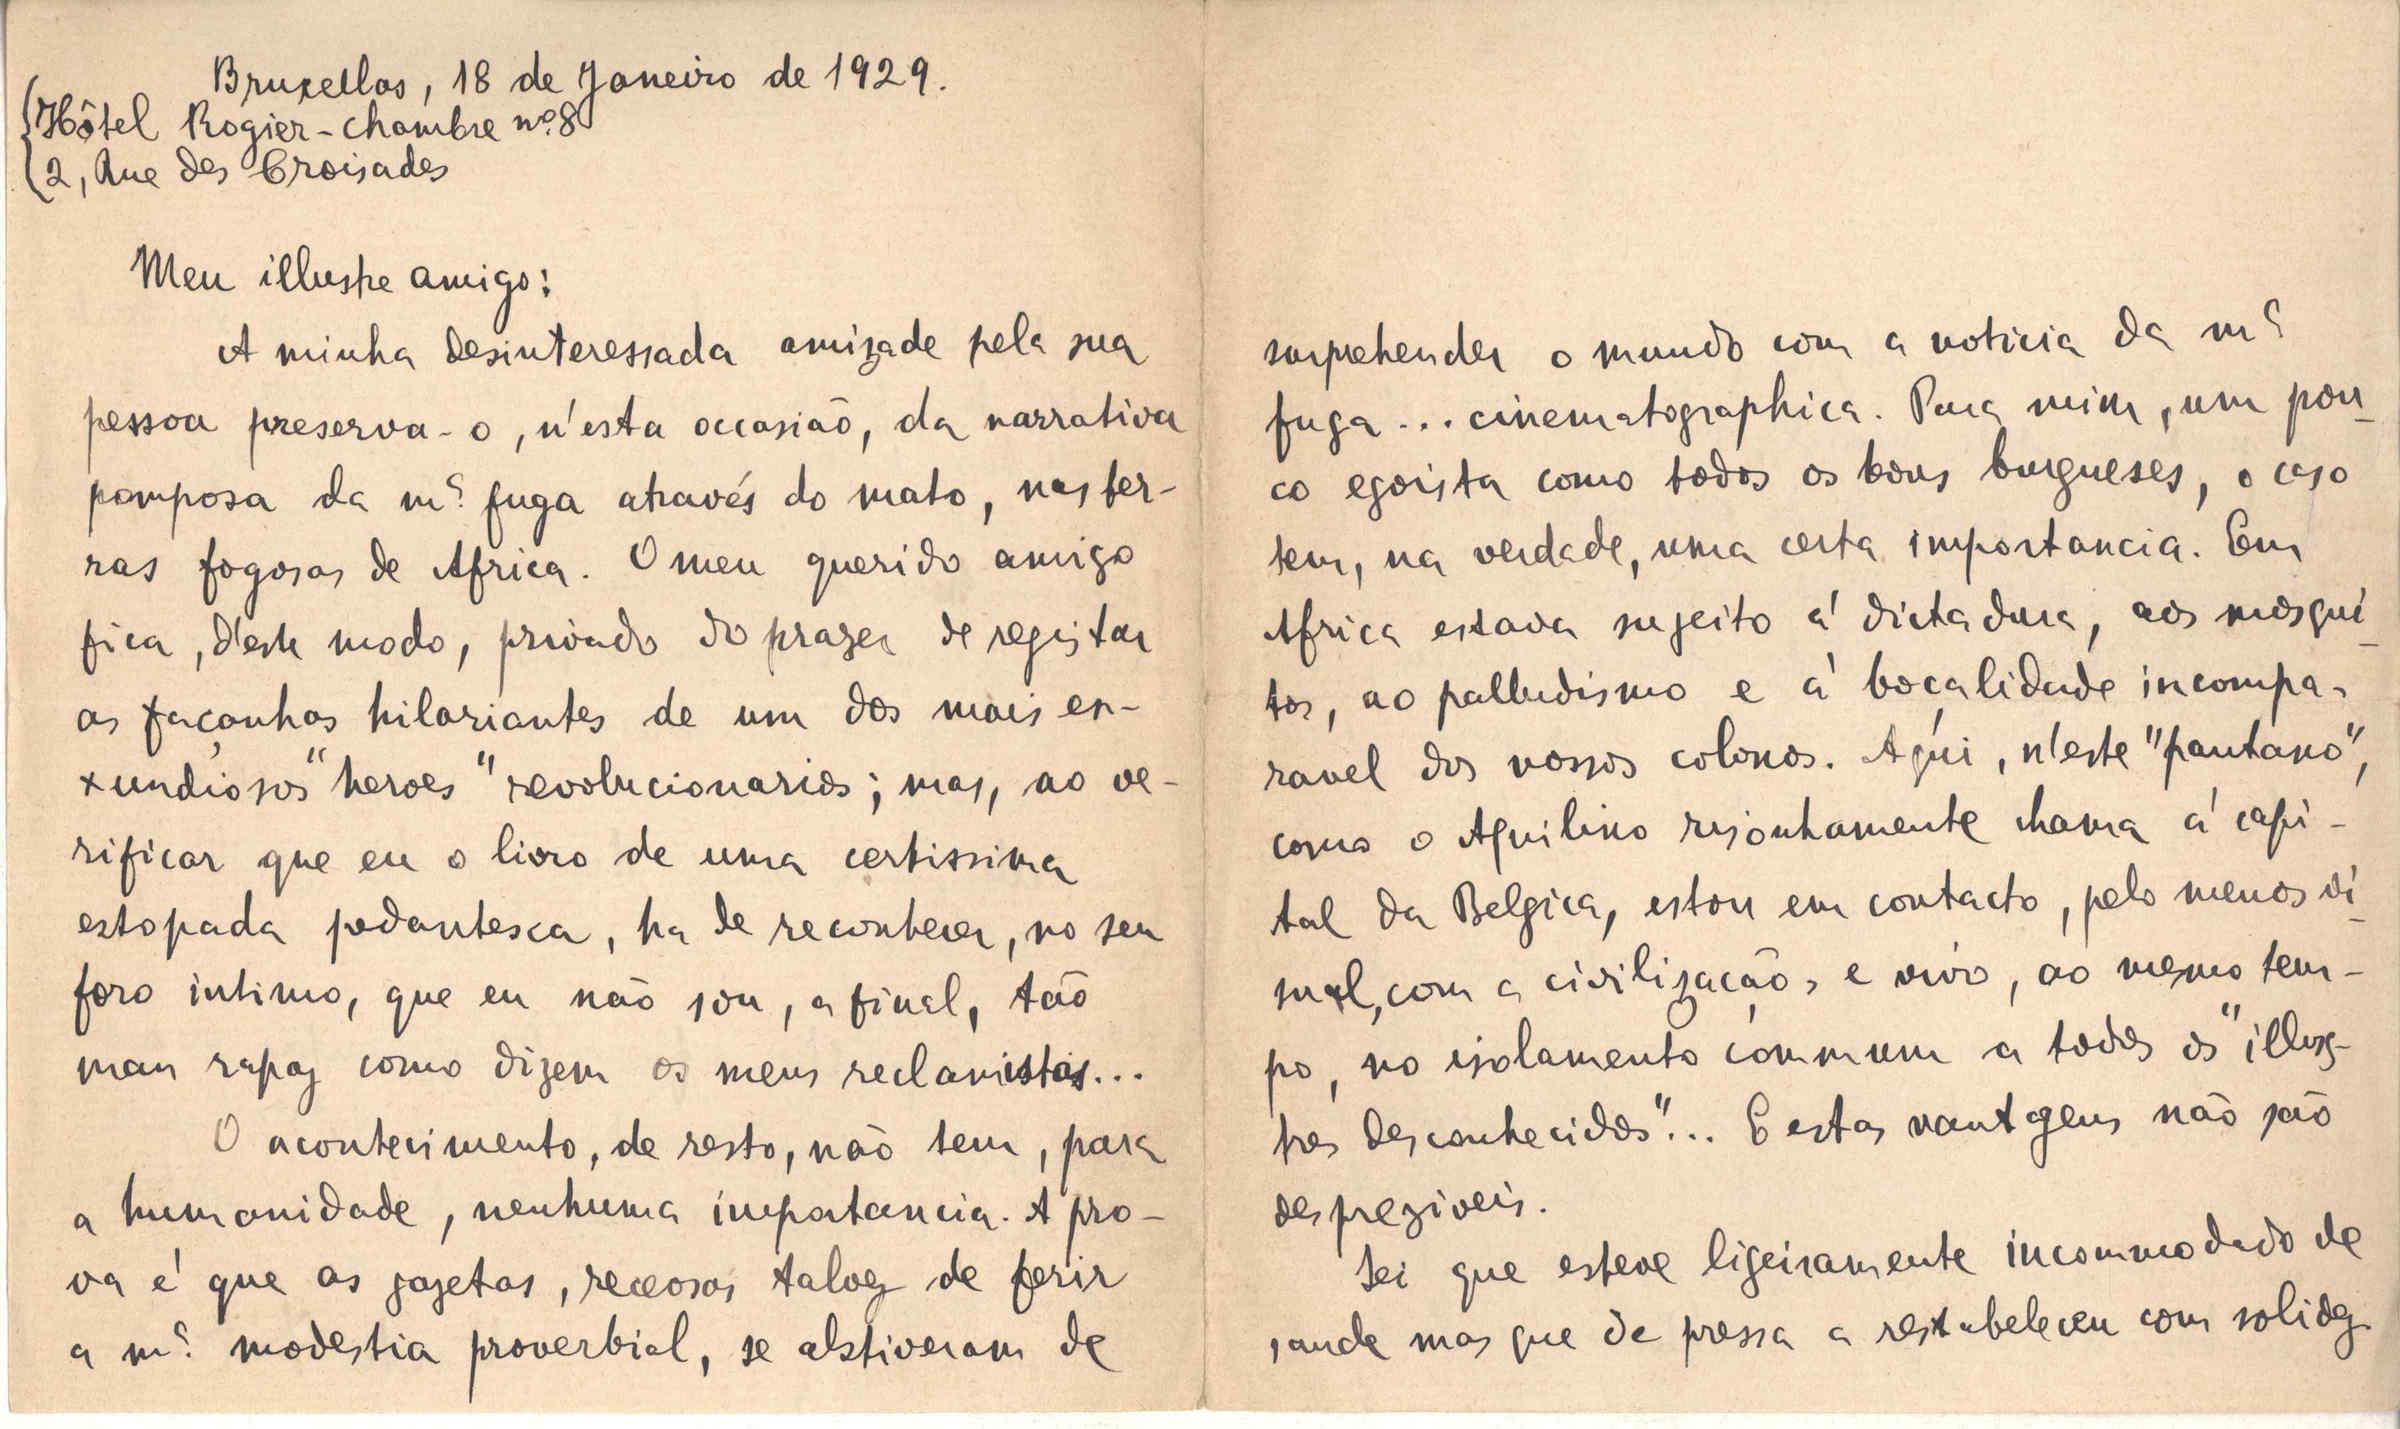 Bruxellas, 18 de Janeiro de 1929.
Hôtel Rogier - Chambre nº 8
2, Rue des Croisades
Meu illustre amigo:
A minha desinteressada amizade pela sua
pessoa preserva-o, n'esta occasião, da narrativa
pomposa da mª fuga através do mato, nas ter-
ras fogosas de Africa. O meu querido amigo
fica, d'este modo, privado do prazer de registar
as façanhas hilariantes de um dos mais en-
xundiosos "heroes" revolucionarios; mas, ao ve-
rificar que eu o livro de uma certissima
estopada pedantesca, ha de reconhecer, no seu
foro intimo, que eu não sou, afinal, tão
mau rapaz como dizem os meus reclamistas...
O acontecimento, de resto, não tem, para
a humanidade, nenhuma importancia. A pro-
va é que as gazetas, receosas talvez de ferir
a mª modestia proverbial, se abstiveram de
surprehender o mundo com a noticia da mª
fuga... cinematographica. Para mim, um pou-
co egoista como todos os bons burgueses, o caso
tem, na verdade, uma certa importancia. Em
Africa estava sujeito á dictadura, aos mosqui-
tos, ao palludismo e á boçalidade incompa-
ravel dos nossos colonos. Aqui, n'este "pantano",
como o Aquilino risonhamente chama á capi-
tal da Belgica, estou em contacto, pelo menos vi-
sual, com a civilização, e vivo, ao mesmo tem-
po, no isolamento commum a todos os "illus-
tres desconhecidos"... E estas vantagens não são
desprezíveis.
Sei que esteve ligeiramente incommodado de
saude mas que de pressa a restabeleceu com solidez